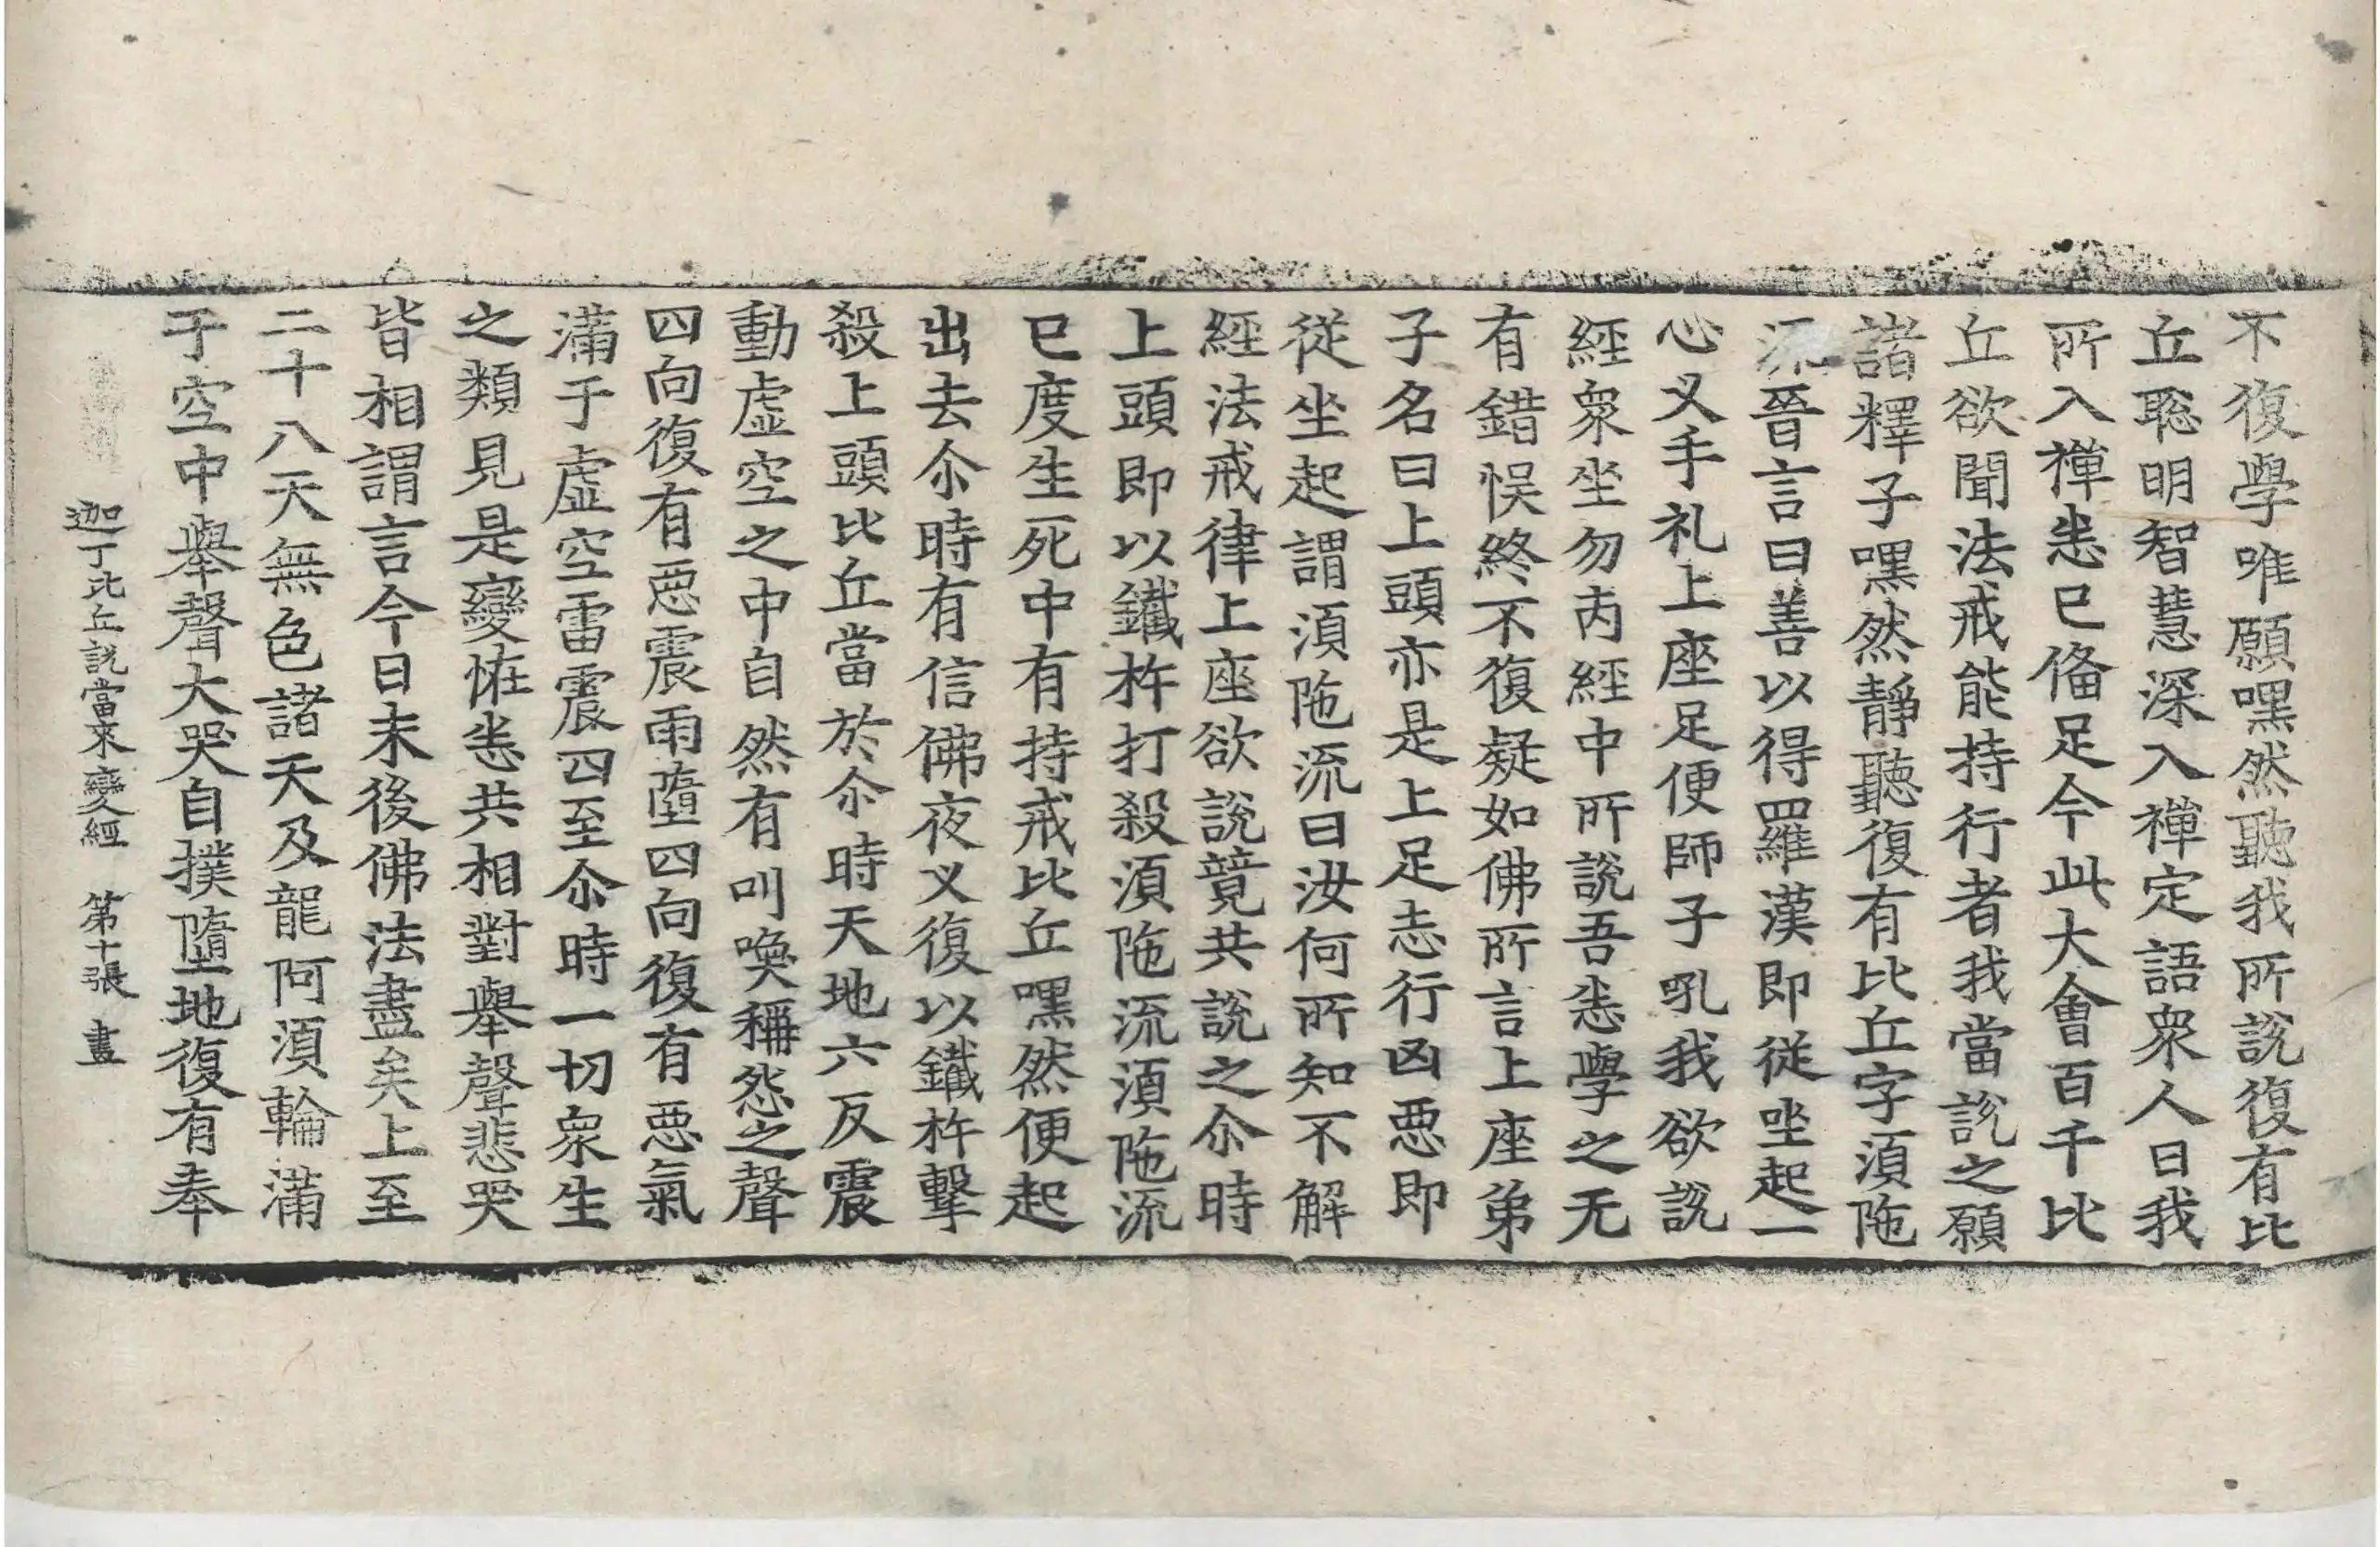 不復學唯願嘿然聽我所說復有比
丘聡明智慧深入禪定語衆人曰我
所入禪恚已俻足今此大會百千比
丘欲聞法戒能持行者我當說之願
諸釋子嘿然靜聽復有比丘字湏陁
流晉言曰善以得羅漢即從坐起一
心叉手礼上座足便師子吼我欲說
經衆坐勿㐫經中所說吾恚學之无
有錯悮終不復疑如佛所言上座弟
子名曰上頭亦是上足恚行凶惡即
從坐起謂湏陁流曰汝何所知不解
經法戒律上座欲說竟共說之尒時
上頭即以鐵杵打殺湏陁流湏陁流
已度生死中有持戒比丘嘿然便起
出去尒時有信佛夜叉復以鐵杵擊
殺上頭比丘當於尒時天地六反震
動虛空之中自然有叫喚稱怨之聲
四向復有惡震雨墮四向復有惡氣
滿于虛空雷震四至尒時一切衆生
之類見是變恠恚共相對舉聲悲哭
皆相謂言今日末後佛法盡矣上至
二十八天無色諸天及龍阿湏輪滿
于空中舉聲大哭自撲墮地復有奉
迦丁比丘說當來變經 第十張 畫